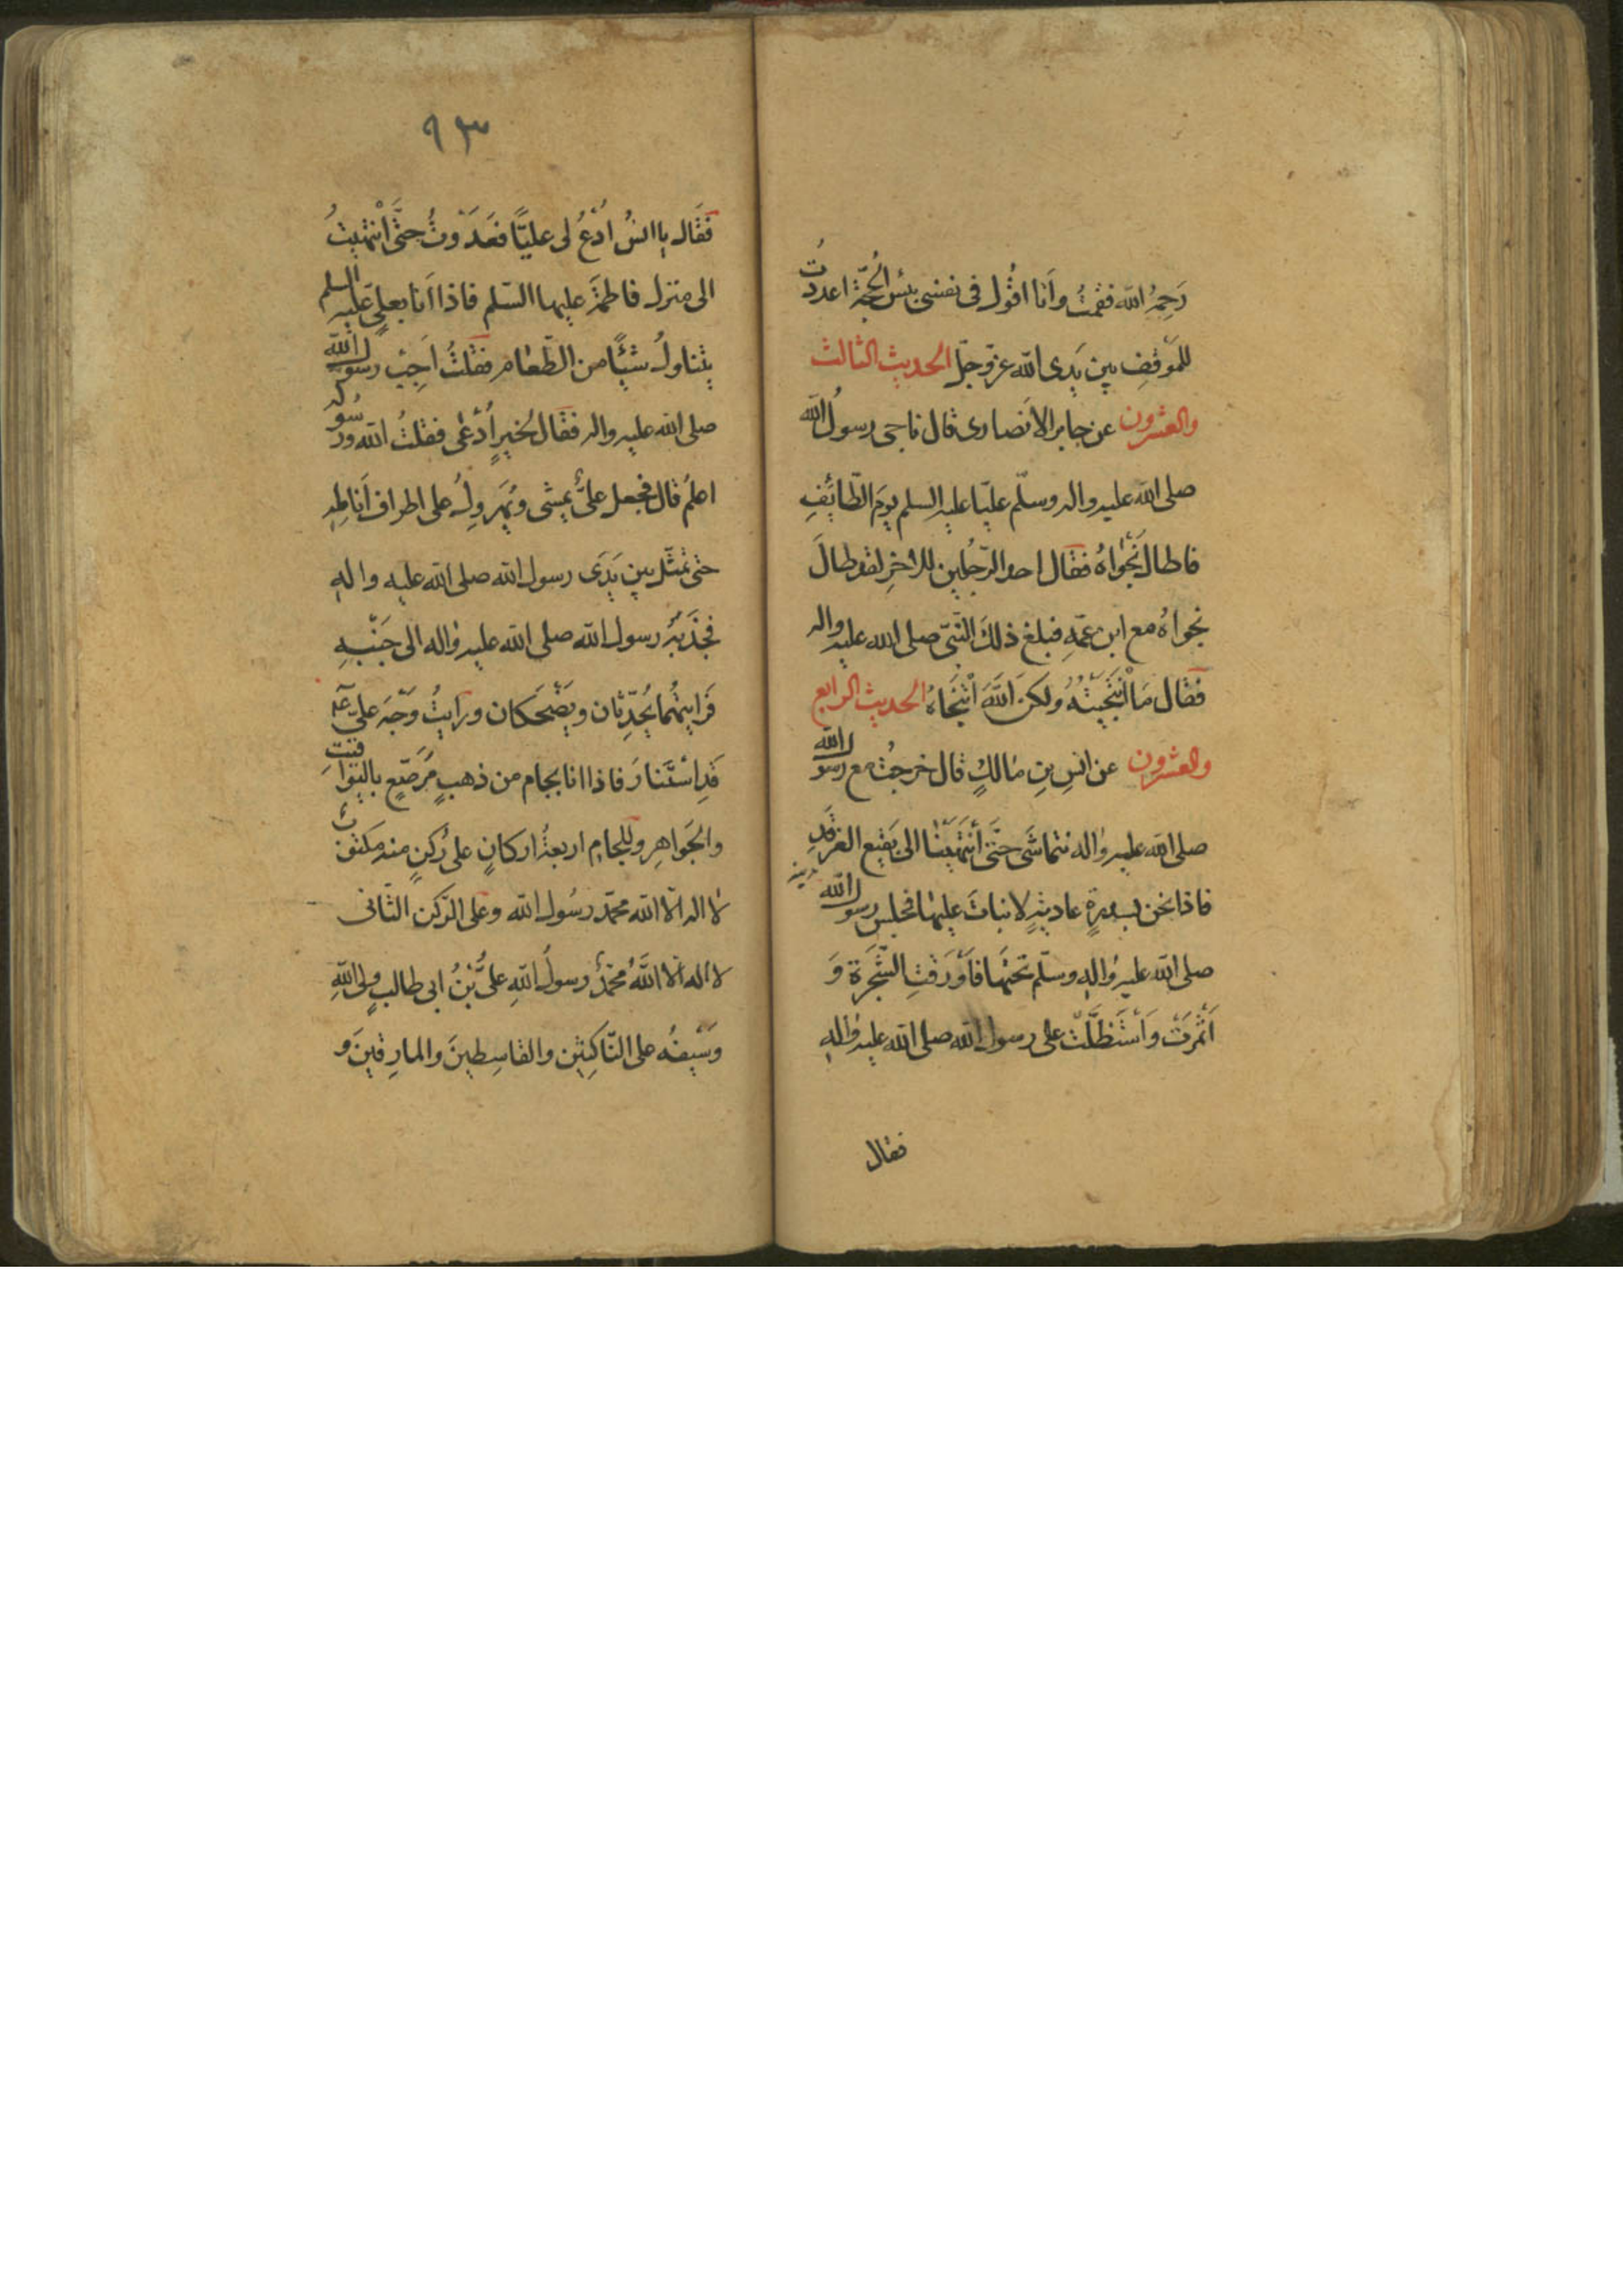 رَحِمَهُ الله فقمتُ وأنا اقُول فى نفسى بئس الحُجّة اعددتُ
للمَوقفِ بين يَدى الله عزّ وجلّ الحديث الثالث
والعشرون عن جابر الانصارى قال ناجى رسولُ الله
صلى الله عليه واله وسلّم عليّا عليه السلم يومَ الطّائِفِ
فاطالَ نَجْواهُ فقال احد الرّجُلين للاخرِ لقد طالَ
نجواهُ مع ابن عمّهِ فبلغ ذلكَ النّبىّ صلى الله عليه واله
فقال مَا انْتَجَيْتُهُ ولكنَ اللَّهَ انْتَجَاهُ الحديث الرابع
والعشرون عن انسِ بنِ مالكٍ قال خرجتُ مع رسول الله
صلى الله عليه واله نتماشَى حتَّى انْتَهَيْنا الى بَقيع الغرقدِ
فاذا نحن بسدرةٍ عاديةٍ لا نباتَ عليها فجلس رسول الله
صلى الله عليه واله وسلّم تحتَها فَأَوْرَقَتِ الشَّجَرَة وَ
اَثْمَرَتْ وَاسْتَظَلَّتْ على رسول الله صلى الله عليه واله
فقال
٩٣
فقَال يا انسُ ادْعُ لى عليّاً فعَدَوْتُ حتَّى انْتهيتُ
الى منزل فاطمَة عليها السّلم فاذا اَنا بعلىٍ عليه السلم
يتناولُ شيئًا من الطّعام فقلتُ اَجِبْ رسول الله
صلى الله عليه واله فقال لخيرٍ اُدْعٰى فقلتُ الله ورسوله
اعلمُ قال فجعل علىٌّ يمشى ويُهَروِلُ على اطراف اَنامِلِه
حتى تمثّل بين يَدَى رسول الله صلى الله عليه واله
فجَذَبَهُ رسول الله صلى الله عليه واله الى جَنْبِهِ
فَرَايتهُما يُحَدِّثان ويَضْحَكان ورَايتُ وَجْهَ علىّ عم
قَدِ اسْتَنارَ فاذا انا بجام من ذهبٍ مُرَصّعٍ باليَواقيتِ
والجَواهِرِ وللجامِ اربعةُ اركانٍ على رُكنٍ منه مكتوبٌ
لا اله الّا الله محمّد رسُول الله وعلى الرّكن الثّانى
لا اله الا اللَّهُ محمّدٌ رسولُ اللهِ علىُّ بْنُ ابى طالبٍ ولى اللهِ
وَسَيْفُه على النّاكِثين والقاسِطينَ والمارِقينَ و